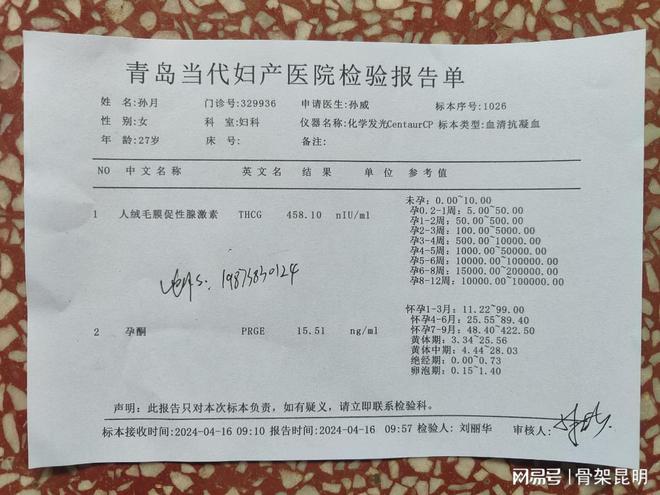 青岛当代妇产医院检验报告单
姓 名:孙月 门诊号:329936 申请医生:孙威 标本序号:1026
性 别:女 科 室:妇科 仪器名称:化学发光CentaurCP 标本类型:血清抗凝血
年 龄:27岁 床 号: 备注:
NO 中文名称 英文名 结 果 单 位 参考值
1 人绒毛膜促性腺激素 THCG 458.10 nIU/ml
未孕: 0.00~10.00
孕0.2-1周: 5.00~50.00
孕1-2周: 50.00~500.00
孕2-3周: 100.00~5000.00
孕3-4周: 500.00~10000.00
孕4-5周: 1000.00~50000.00
孕5-6周: 10000.00~100000.00
孕6-8周: 15000.00~200000.00
孕8-12周: 10000.00~100000.00
19875830124
2 孕酮 PRGE 15.51 ng/ml
怀孕1-3月: 11.22~99.00
怀孕4-6月: 25.55~89.40
怀孕7-9月: 48.40~422.50
黄体期: 3.34~25.56
黄体中期: 4.44~28.03
绝经期: 0.00~0.73
卵泡期: 0.15~1.40
声明: 此报告只对本次标本负责, 如有疑义, 请立即联系检验科。
标本接收时间:2024-04-16 09:10 报告时间:2024-04-16 09:57 检验人: 刘丽华 审核人:
网易号 | 骨架昆明